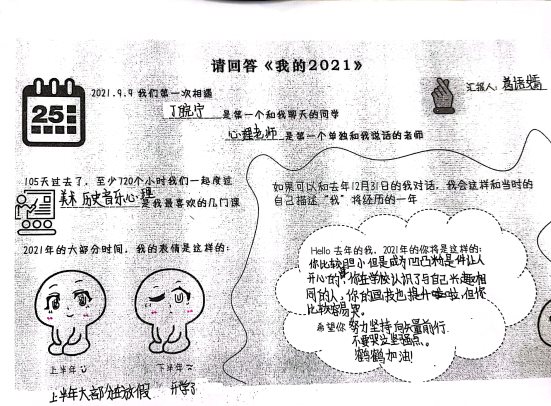 请回答《我的2021》
2021.9.9 我们第一次相遇
汇报人:
丁皖宁 是第一个和我聊天的同学
心理老师 是第一个单独和我说话的老师
25
105天过去了,至少720个小时我们一起度过
美术 历史 音乐 心理
是我最喜欢的几门课
如果可以和去年12月31日的我对话,我会这样和当时的
自己描述“我”将经历的一年
2021年的大部分时间,我的表情是这样的:
Hello 去年的我,2021年的你将是这样的:
你比较胆小但是成为凹凸粉是件让人
开心的事,你在学校认识了与自己兴趣相
同的人,你的画技也提升啦啦但你
比较容易哭。
希望你 努力坚持向前行
不要哭这坚强点。
鹤鹤加油!
上半年
下半年
上半年大部分在放假 开学了